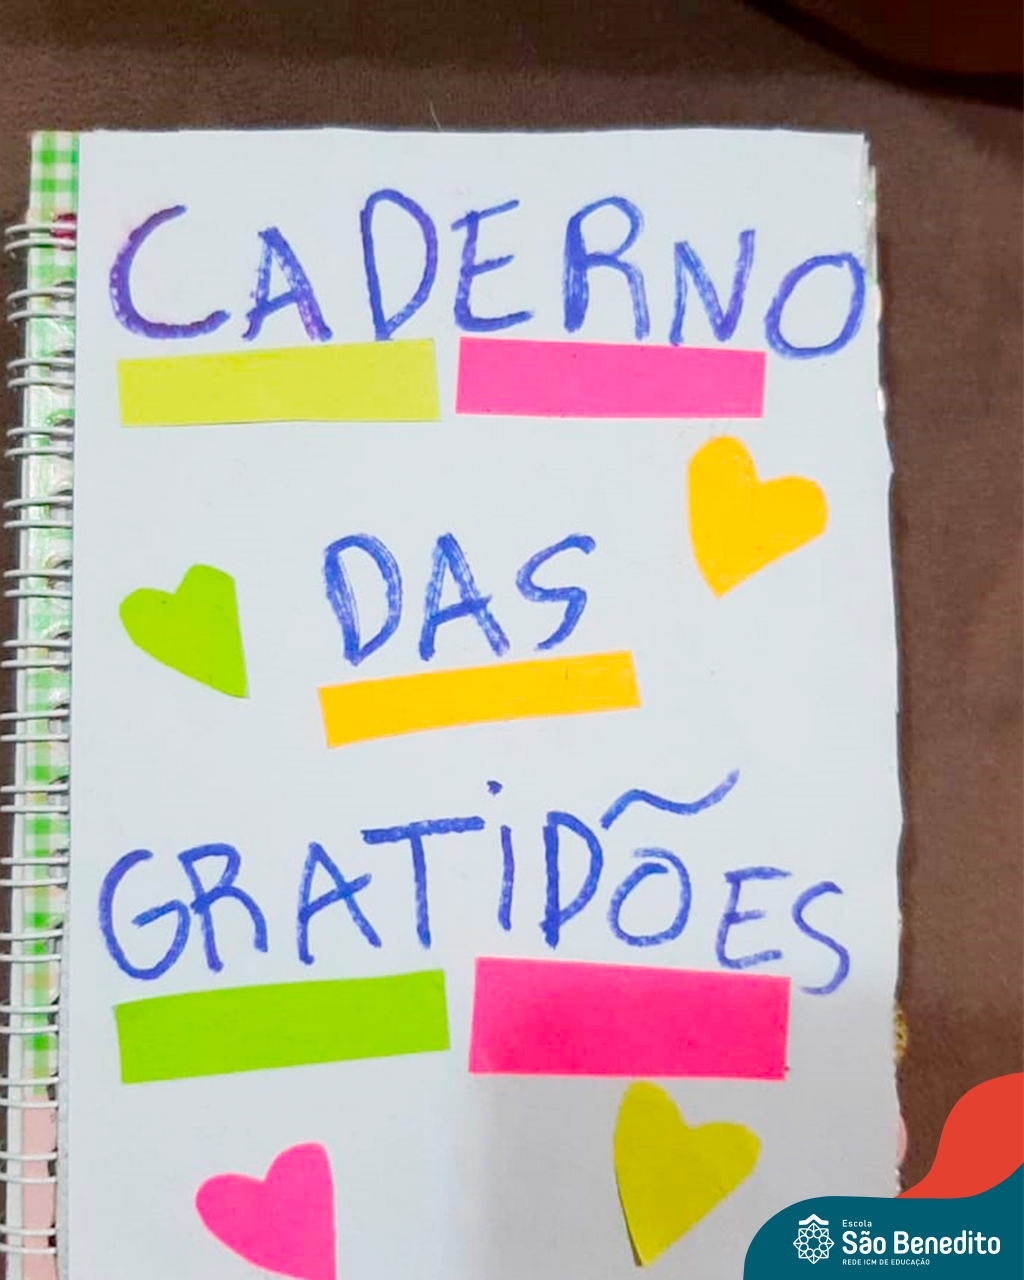 CADERNO
DAS
GRATiDÕES
Escola
São Benedito
REDE ICM DE EDUCAÇÃO